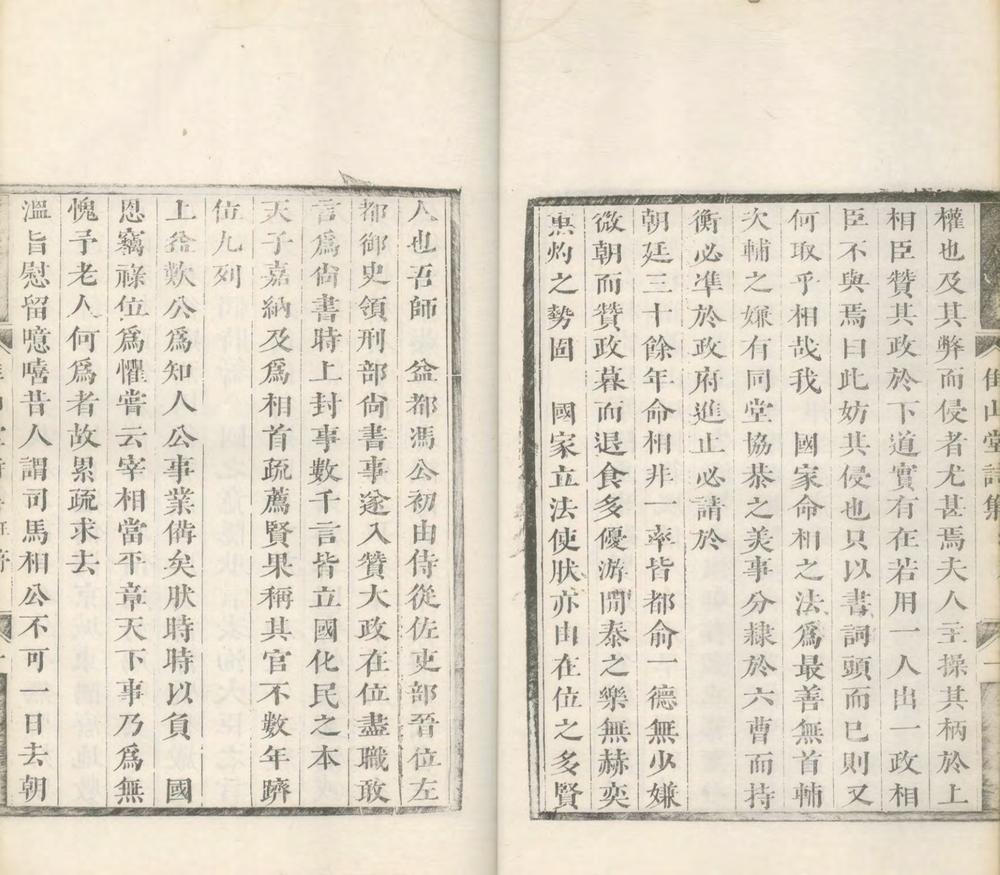 權也及其弊而侵者尤甚焉夫人主操其柄於上
相臣贊其政於下道實有在若用一人出一政相
臣不與焉曰此妨其侵也只以書詞頭而已則又
何取乎相哉我　國家命相之法爲最善無首輔
次輔之嫌有同堂協恭之美事分隸於六曹而持
衡必準於政府進止必請於
朝廷三十餘年命相非一率皆都俞一德無少嫌
微朝而贊政暮而退食多優游閒泰之樂無赫奕
熏灼之勢固　國家立法使肰亦由在位之多賢
人也吾師　益都馮公初由侍從佐吏部晉位左
都御史領刑部尙書事遂入贊大政在位盡職敢
言爲尙書時上封事數千言皆立國化民之本
天子嘉納及爲相首疏薦賢果稱其官不數年躋
位九列
上益歎公爲知人公事業備矣肰時時以負　國
恩竊祿位爲懼嘗云宰相當平章天下事乃爲無
愧予老人何爲者故累疏求去
溫旨慰留噫嘻昔人謂司馬相公不可一日去朝
佳山堂詩集